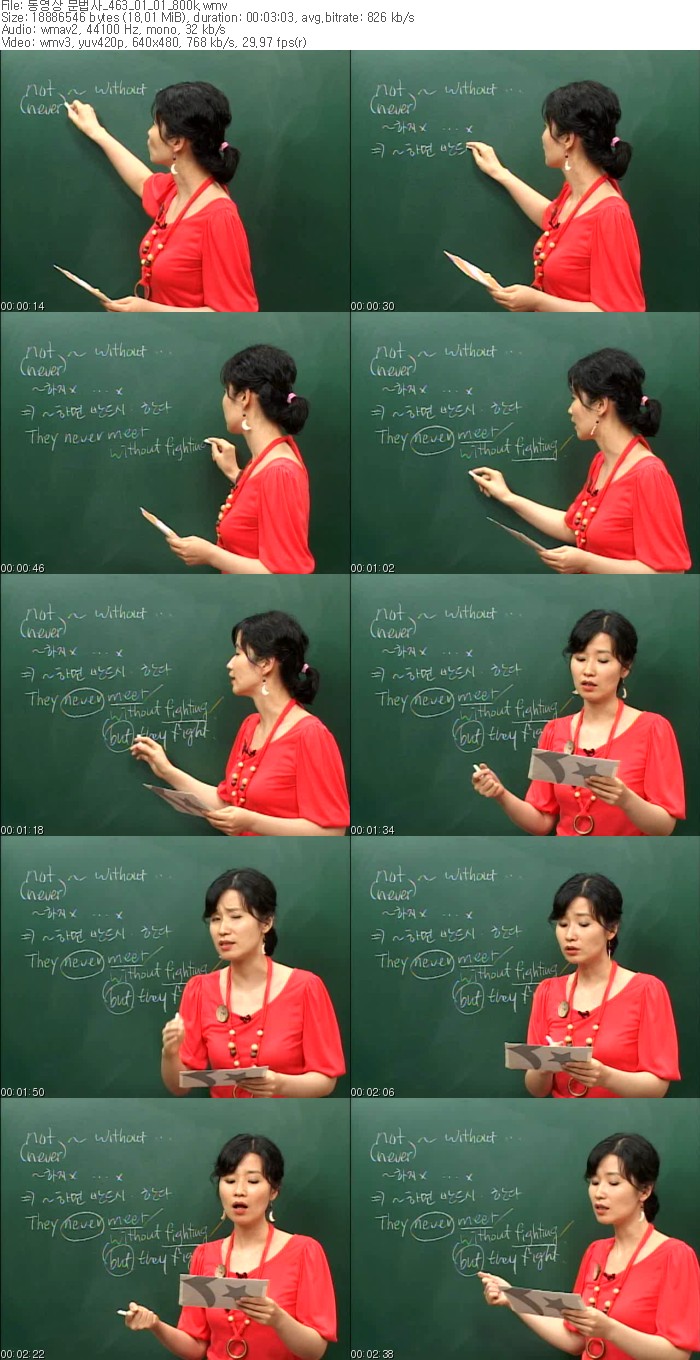 File: 동영상 문법사_463_01_01_800k.wmv
Size: 18886546 bytes (18.01 MiB), duration: 00:03:03, avg.bitrate: 826 kb/s
Audio: wmav2, 44100 Hz, mono, 32 kb/s
Video: wmv3, yuv420p, 640x480, 768 kb/s, 29.97 fps(r)
not ~ without ...
(never
00:00:14
not ~ without ...
(never)
~하지 x ... x
⇒ ~하면 반드
00:00:30
not ~ without ...
(never)
~하지 x ... x
⇒ ~하면 반드시 ... 한다
They never meet
without fighting
00:00:46
not ~ without ...
(never)
~하지 x ... x
⇒ ~하면 반드시 ... 한다
They never meet
without fighting
00:01:02
not ~ without ...
(never)
~하지 x ... x
⇒ ~하면 반드시 ... 한다
They never meet
without fighting
but they fight
00:01:18
not ~ without ...
(never)
~하지 x ... x
⇒ ~하면 반드시 ... 한다
They never meet
without fighting
but they fight
00:01:34
not ~ without ...
(never)
~하지 x ... x
⇒ ~하면 반드시 ... 한다
They never meet
without fighting
but they f
00:01:50
not ~ without ...
(never)
~하지 x ... x
⇒ ~하면 반드시 ... 한다
They never meet
without fighting
but they f
00:02:06
not ~ without ...
(never)
~하지 x ... x
⇒ ~하면 반드시 ... 한다
They never meet
without fighting
but they fig
00:02:22
not ~ without ...
(never)
~하지 x ... x
⇒ ~하면 반드시 ... 한다
They never meet
without fighting
but they fight
00:02:38